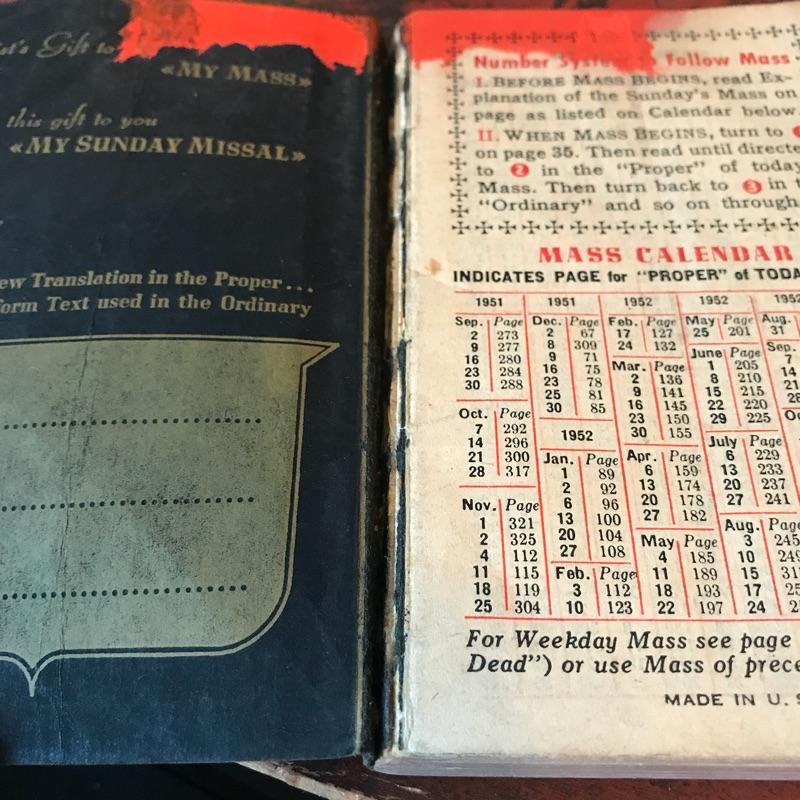 Gift to
«MY MASS»
this gift to you
«MY SUNDAY MISSAL»
Translation in the Proper...
Text used in the Ordinary
Number to Follow Mass
I. BEFORE MASS BEGINS, read Ex-
planation of the Sunday's Mass on
page as listed on Calendar below.
II. WHEN MASS BEGINS, turn to
on page 35. Then read until directe
to 2 in the "Proper" of today
Mass. Then turn back to 3 in
"Ordinary" and so on through
MASS CALENDAR
INDICATES PAGE for "PROPER" of
1951 1951 1952 1952
Sep. Page
2 273
9 277
16 280
23 284
30 288
Oct. Page
7 292
14 296
21 300
28 317
Nov. Page
1 321
2 325
4 112
11 115
18 119
25 304
Dec. Page
2 67
8 309
9 71
16 75
23 78
25 81
30 85
1952
Jan. Page
1 89
2 92
6 96
13 100
20 104
27 108
Feb. Page
3 112
10 123
Feb. Page
17 127
24 132
Mar. Page
2 136
9 141
16 145
23 150
30 155
Apr. Page
6 159
13 174
20 178
27 182
May Page
4 185
11 189
18 193
22 197
May Page
25 201
June Page
1 205
8 210
15 215
22 220
29 225
July Page
6 229
13 233
20 237
27 241
Aug. Page
3 245
10
15
17
24
Aug.
31
Sep.
7
14
21
For Weekday Mass see page
Dead") or use Mass of
MADE IN U.